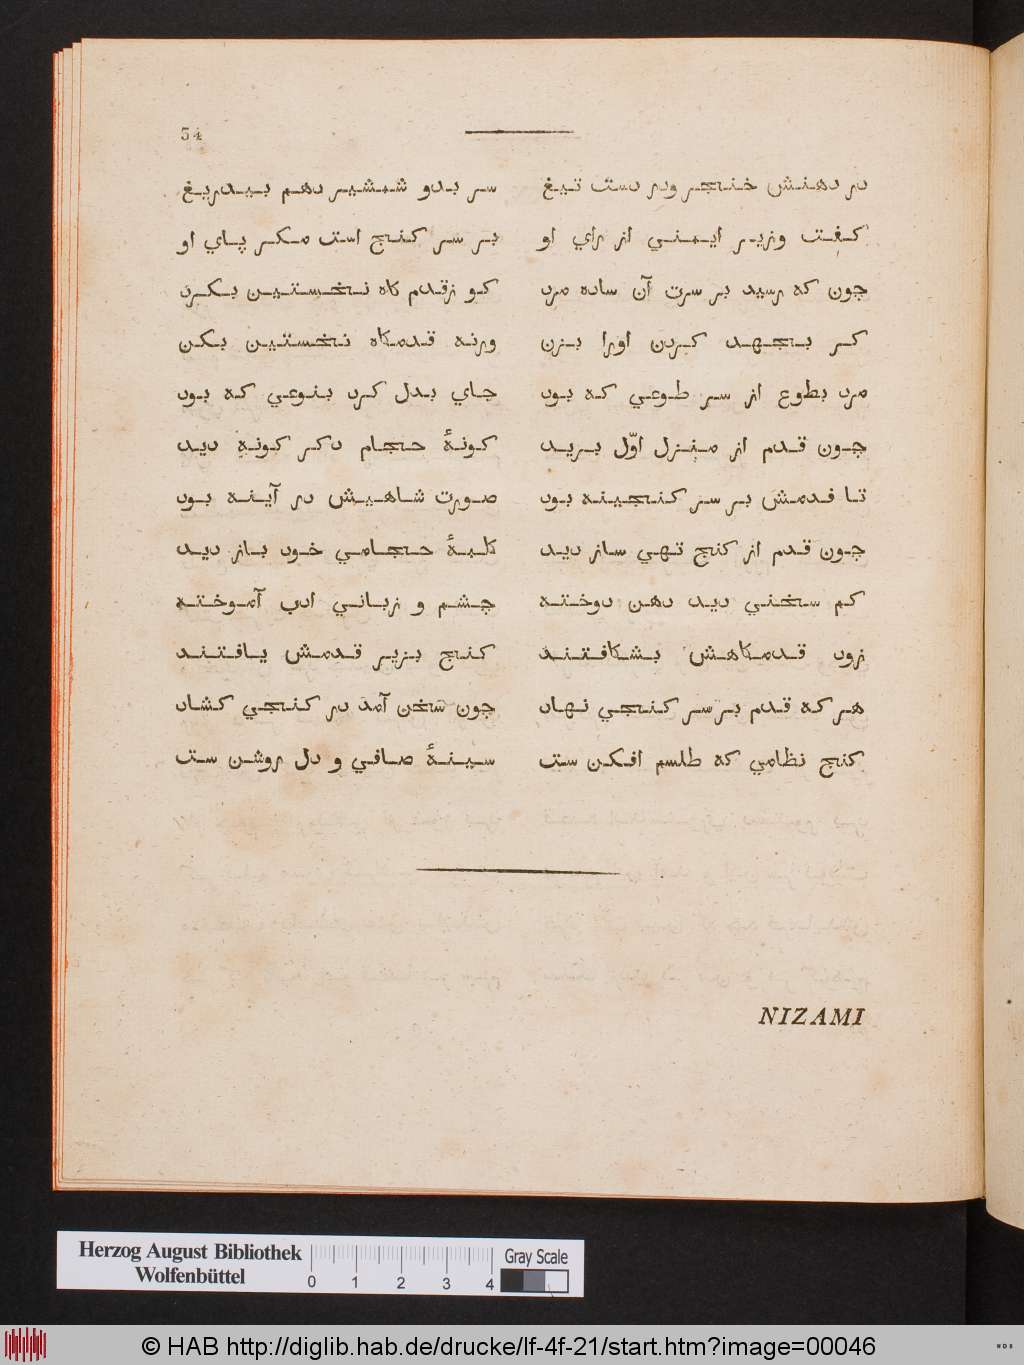 54
در دهنش خنجر ودر دست تيغ سر بدو شمشير دهم بيدريغ
كفت وزير ايمني از راي او بر سر كنج است مكر پاي او
چون كه رسيد بر سرت آن ساده مرد كو زقدم كاه نخستين بكرد
كر بجهد كردن اورا بزن ورنه قدمكاه نخستين بكن
مرد بطوع از سر طوعي كه بود جاي بدل كرد بنوعي كه بود
چون قدم از منزل اوّل بريد كونهٔ حجام دكر كونه ديد
تا قدمش بر سر كنجينه بود صورت شاهيش در آينه بود
چون قدم از كنج تهي ساز ديد كلبهٔ حجامي خود باز ديد
كم سخني ديد دهن دوخته چشم و زباني ادب آموخته
زود قدمكاهش بشكافتند كنج بزير قدمش يافتند
هر كه قدم بر سر كنجي نهاد چون سخن آمد در كنجي كشاد
كنج نظامي كه طلسم افكن ست سينهٔ صافي و دل روشن ست
NIZAMI
Herzog August Bibliothek
Wolfenbüttel
0 1 2 3 4
Gray Scale
© HAB http://diglib.hab.de/drucke/lf-4f-21/start.htm?image=00046